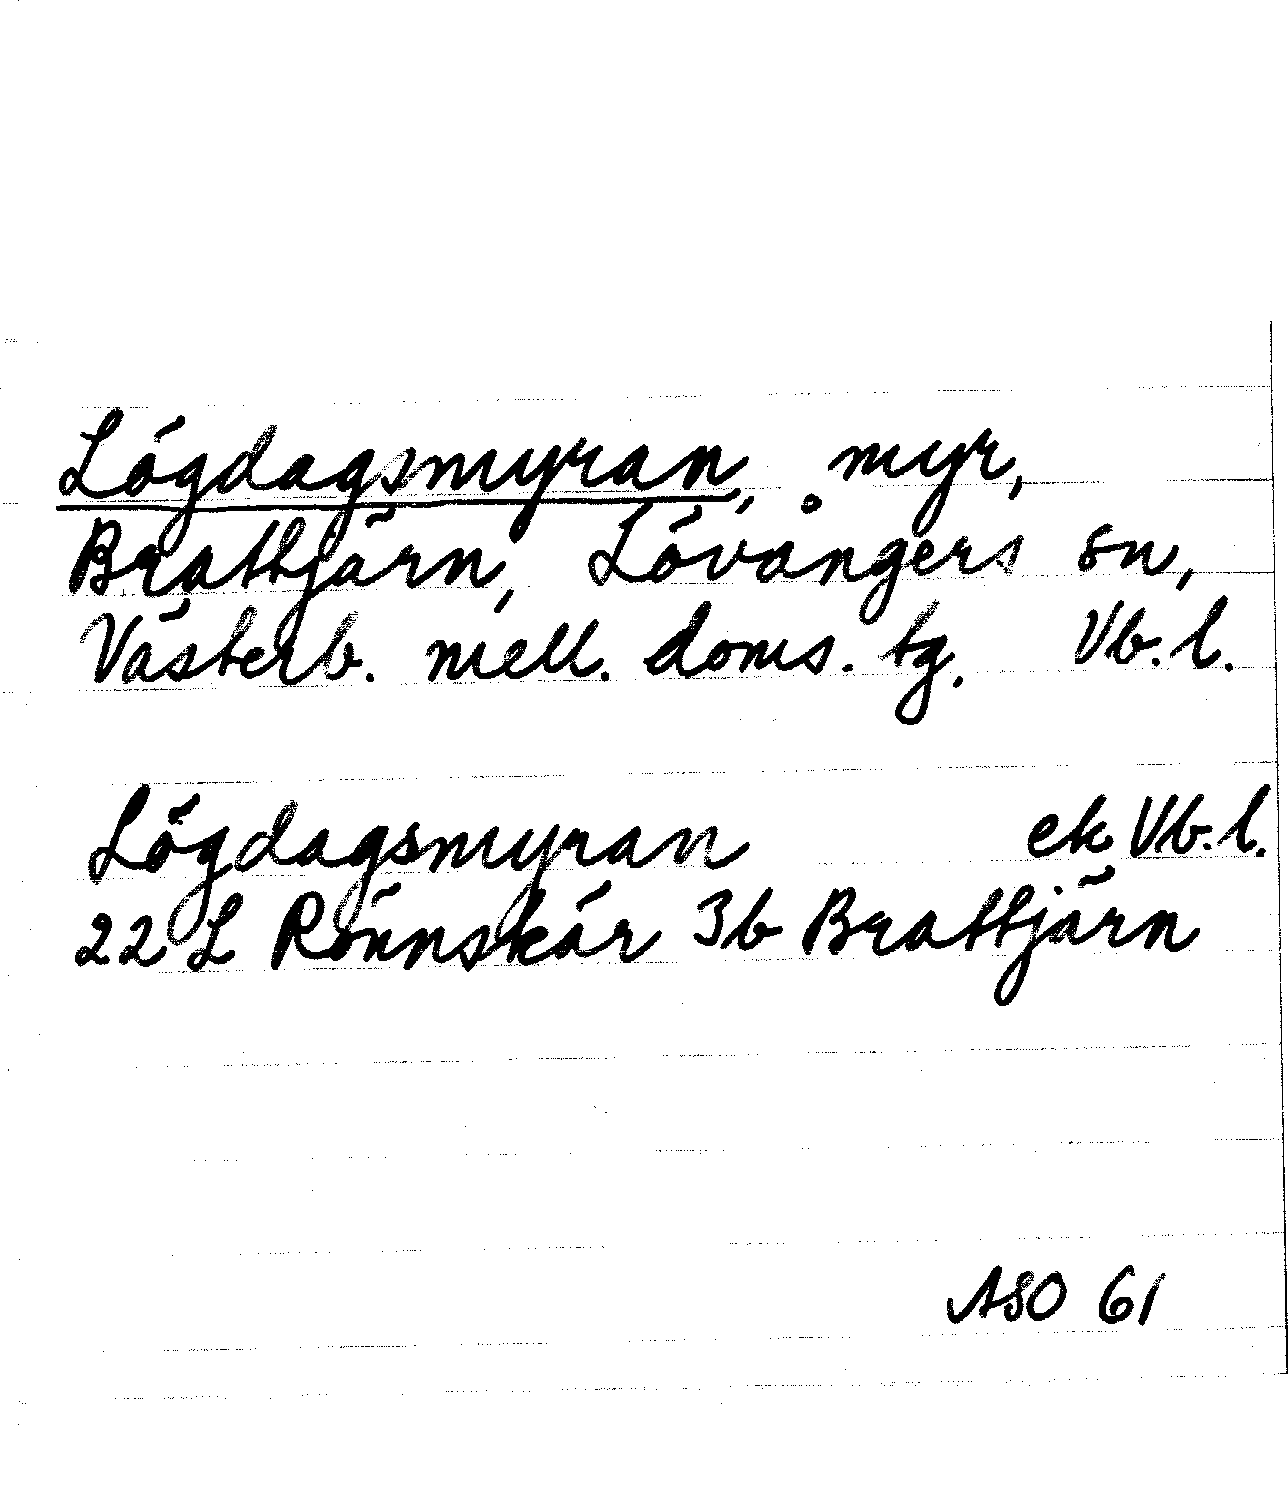 Lögdagsmyran, myr,
Brattjärn, Lövångers sn,
Västerb. mell. doms. tg. Vb. l.
Lögdagsmyran ek Vb. l.
22 L Rönnskär 3b Brattjärn
ASO 61